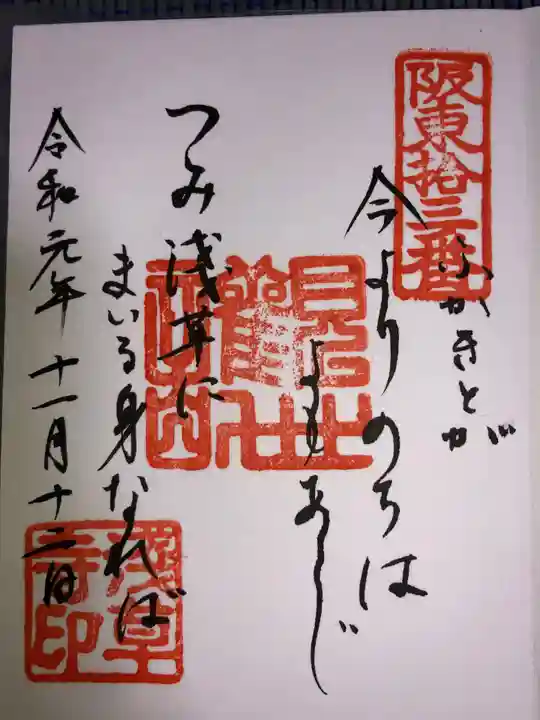 阪東拾三番
ふかきとが
今よりのちは
よもあらじ
つみ浅草に
まいる身なれば
令和元年十一月十二日
浅草寺印